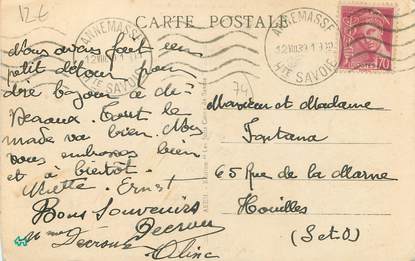 12€
CARTE POSTALE
ANNEMASSE
HTE SAVOIE
ANNEMASSE
12 VIII 39
HTE SAVOIE
70
74
Nous avons fait un
petit détour pour
dire bonjour à
Tout le
monde va bien. Nous
vous embrassons bien
et à bientôt.
Ernst
Bons Souvenirs
Mme Decroux Decroux
Monsieur et Madame
Fontana
65 Rue de la Marne
Houilles
(S et O)